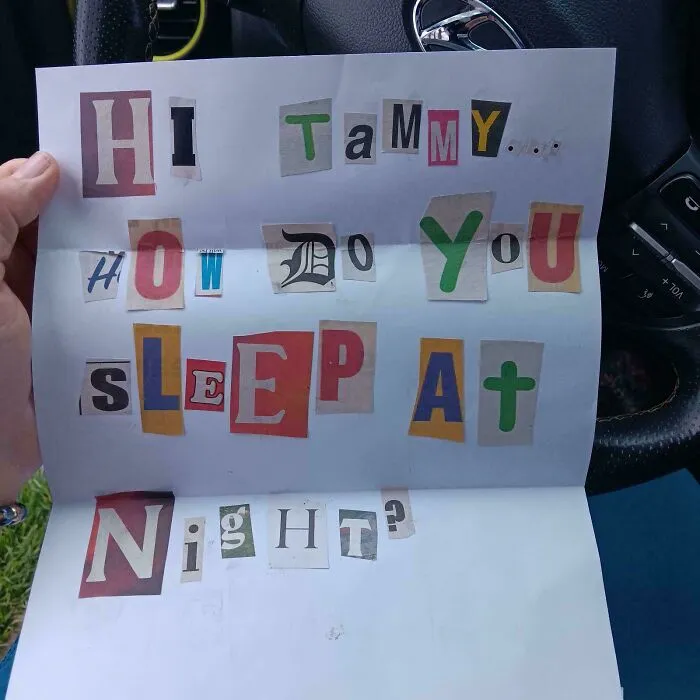 HI TaMMY....
HOW Do YoU
SLEEP At
NigHT?
VOL +